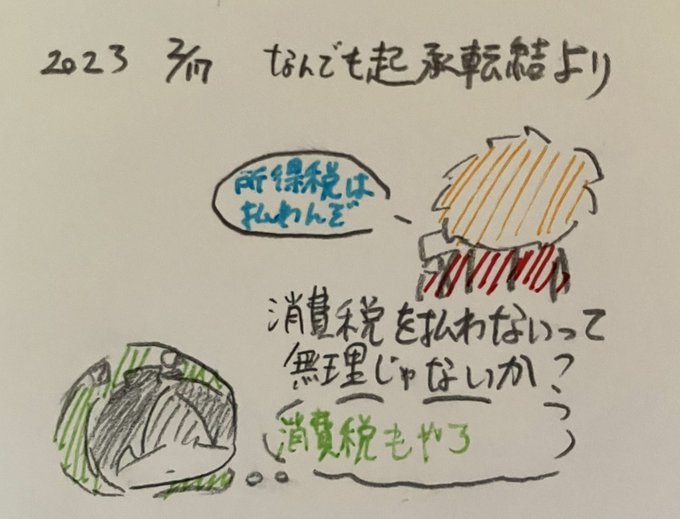 2023 2/17 なんでも起承転結より
所得税は
払わんぞ
消費税を払わないって
無理じゃないか?
消費税もやろ